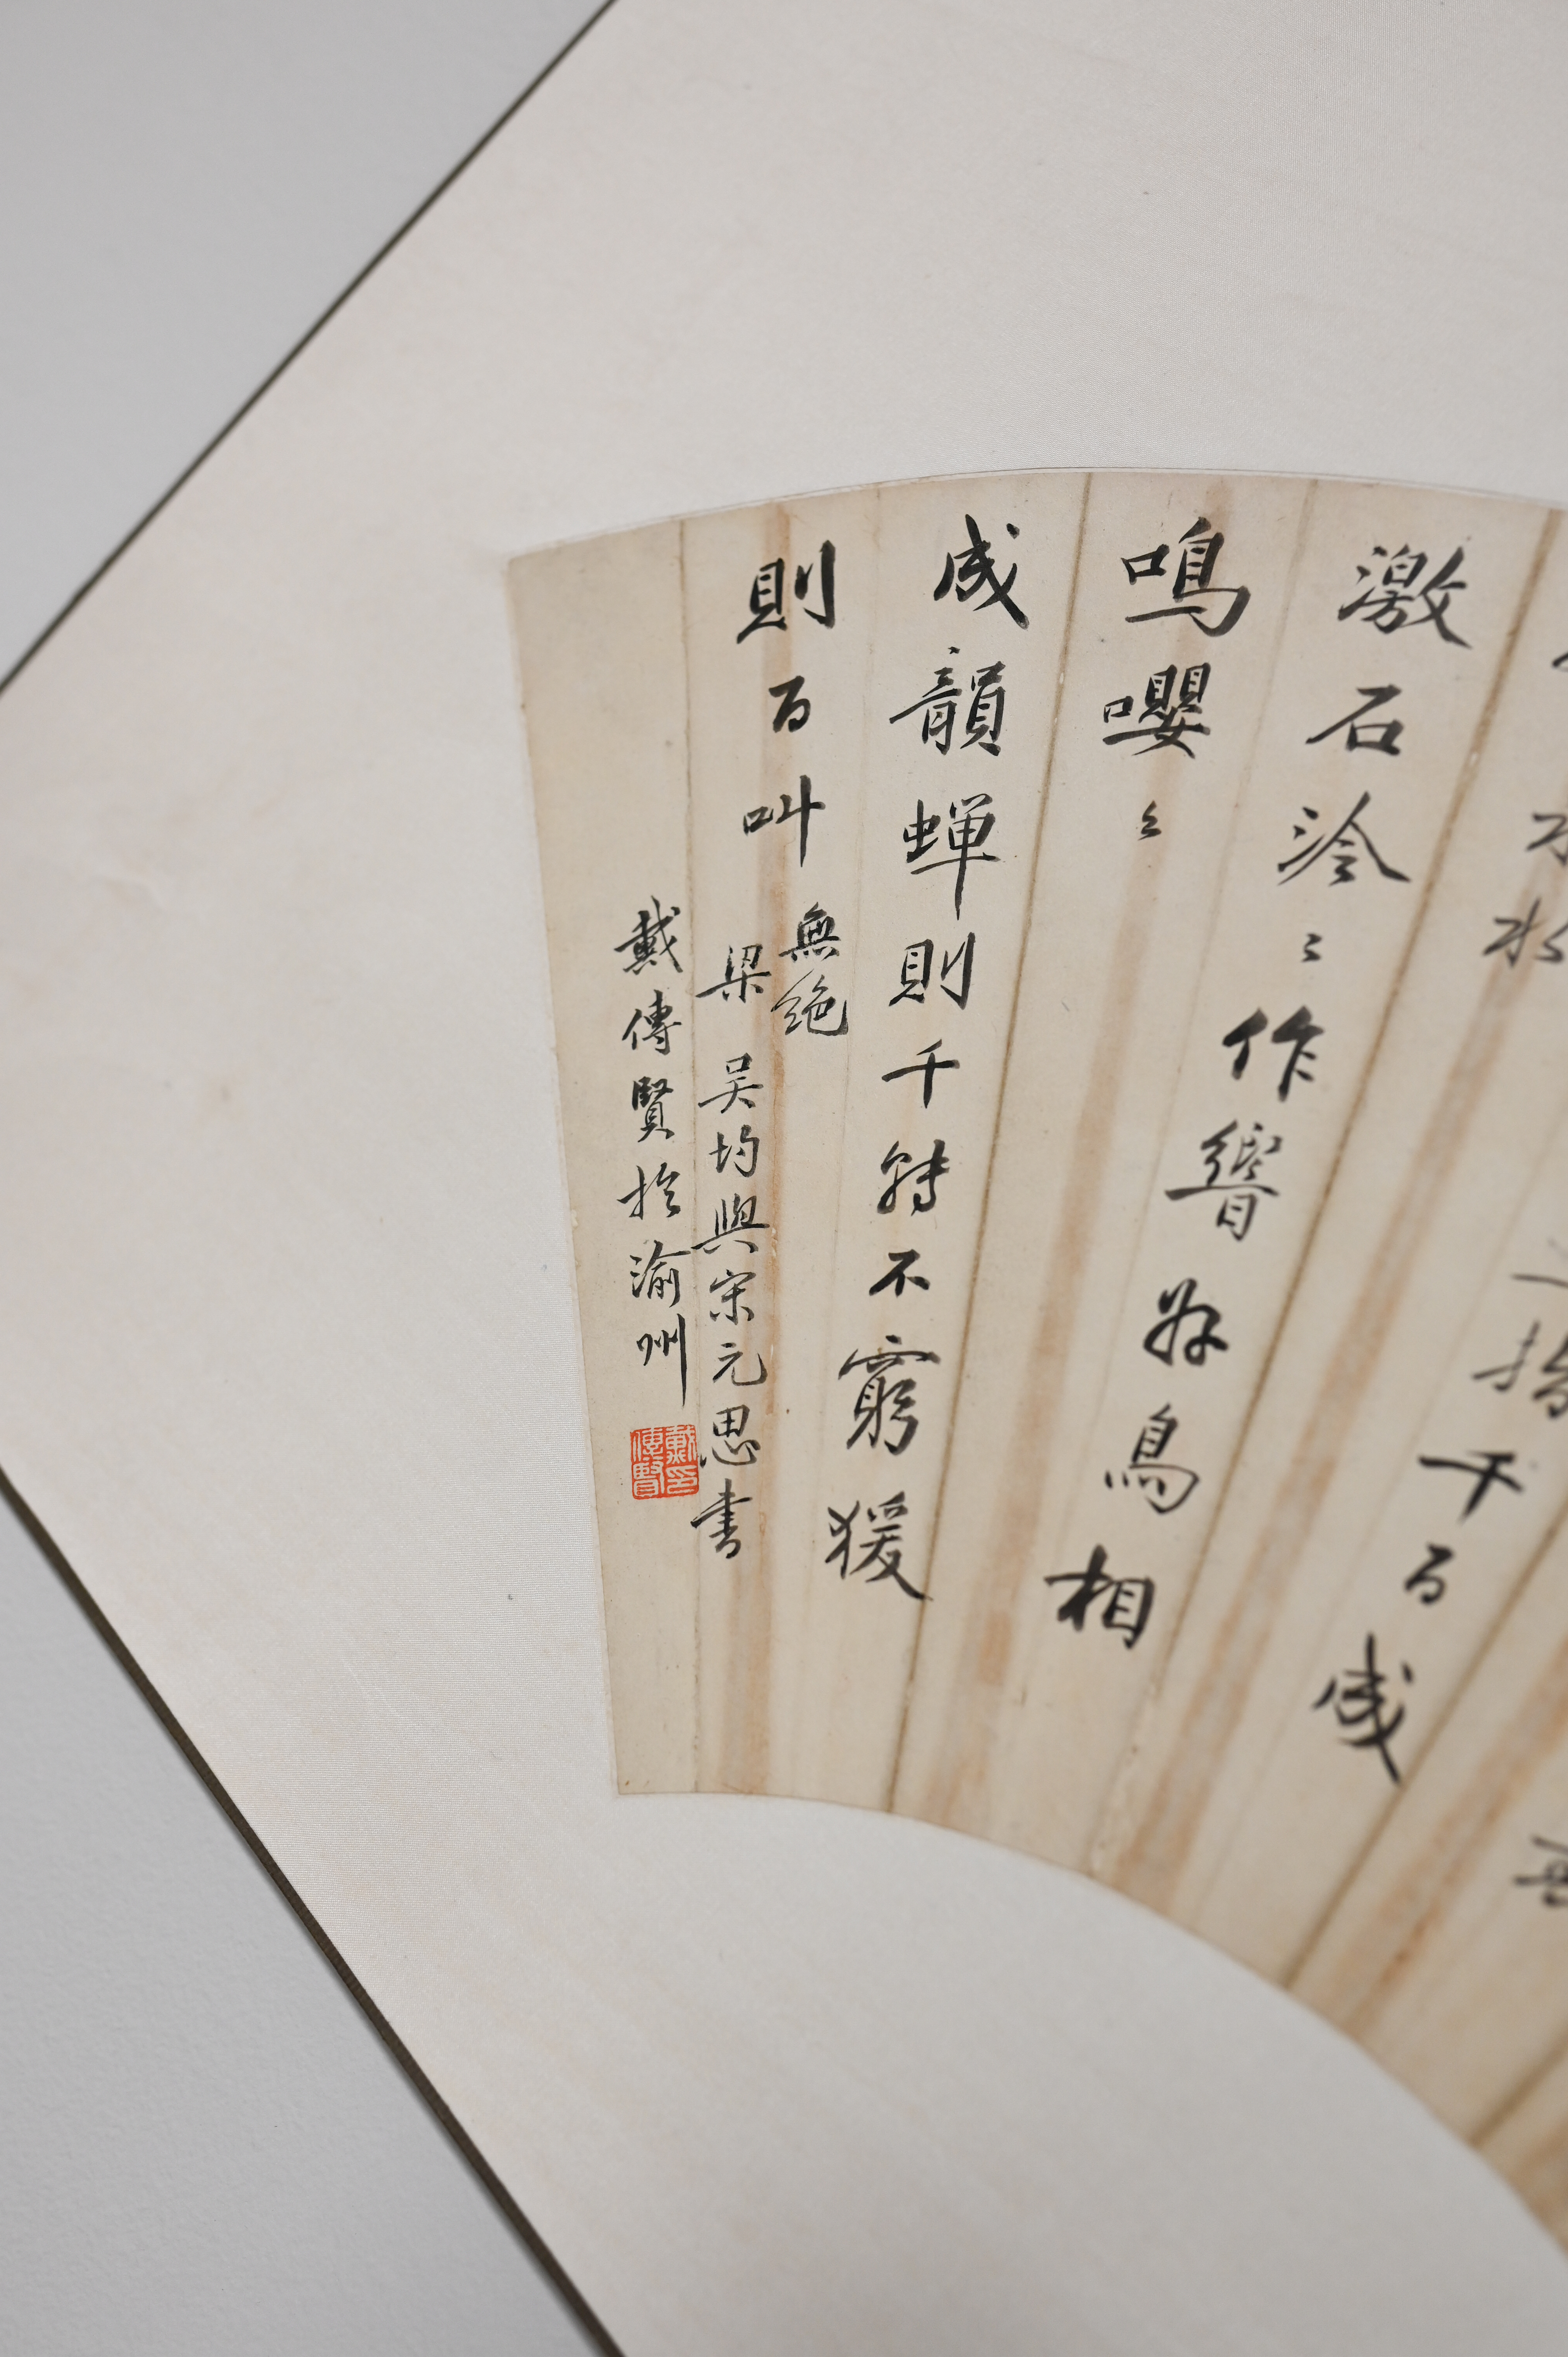 千百成
激石泠〻作響好鳥相
鳴嚶〻
成韻蟬則千轉不窮猨
則百叫無絕
梁 吴均與宋元思書
戴傳賢扵渝州
戴傳賢印